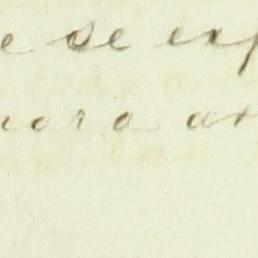 e se exp
nora ar